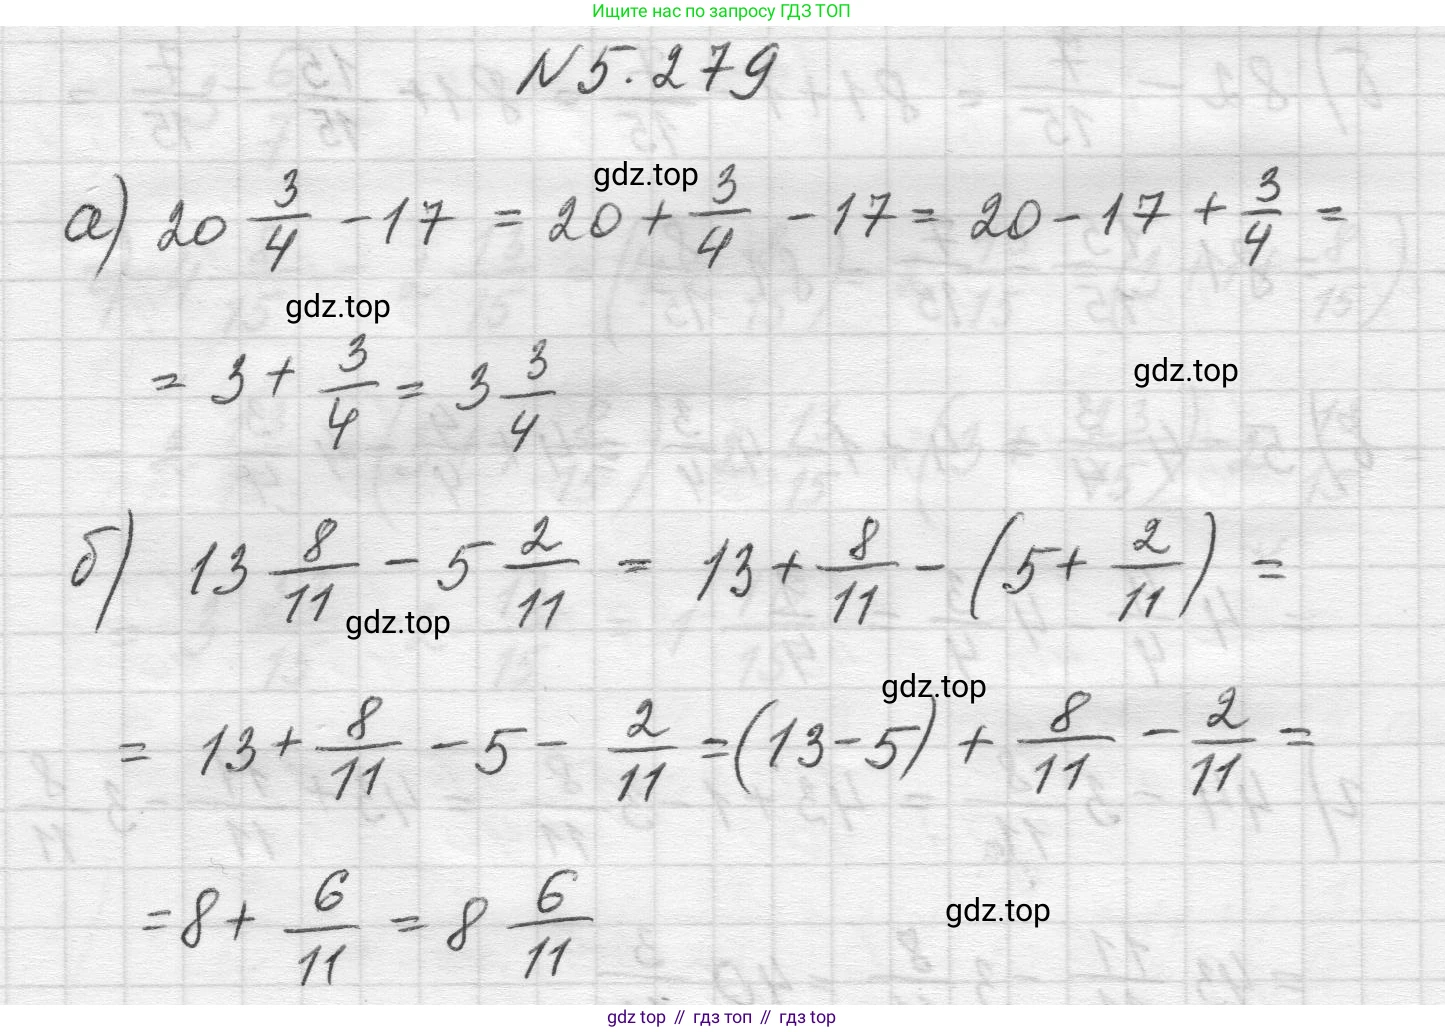 Ищите нас по запросу ГДЗ ТОП
N 5.279
gdz.top
а) 20 3/4 - 17 = 20 + 3/4 - 17 = 20 - 17 + 3/4 =
gdz.top
= 3 + 3/4 = 3 3/4
gdz.top
б) 13 8/11 - 5 2/11 = 13 + 8/11 - (5 + 2/11) =
gdz.top
gdz.top
= 13 + 8/11 - 5 - 2/11 = (13 - 5) + 8/11 - 2/11 =
= 8 + 6/11 = 8 6/11
gdz.top
gdz top // гдз топ // гдз top